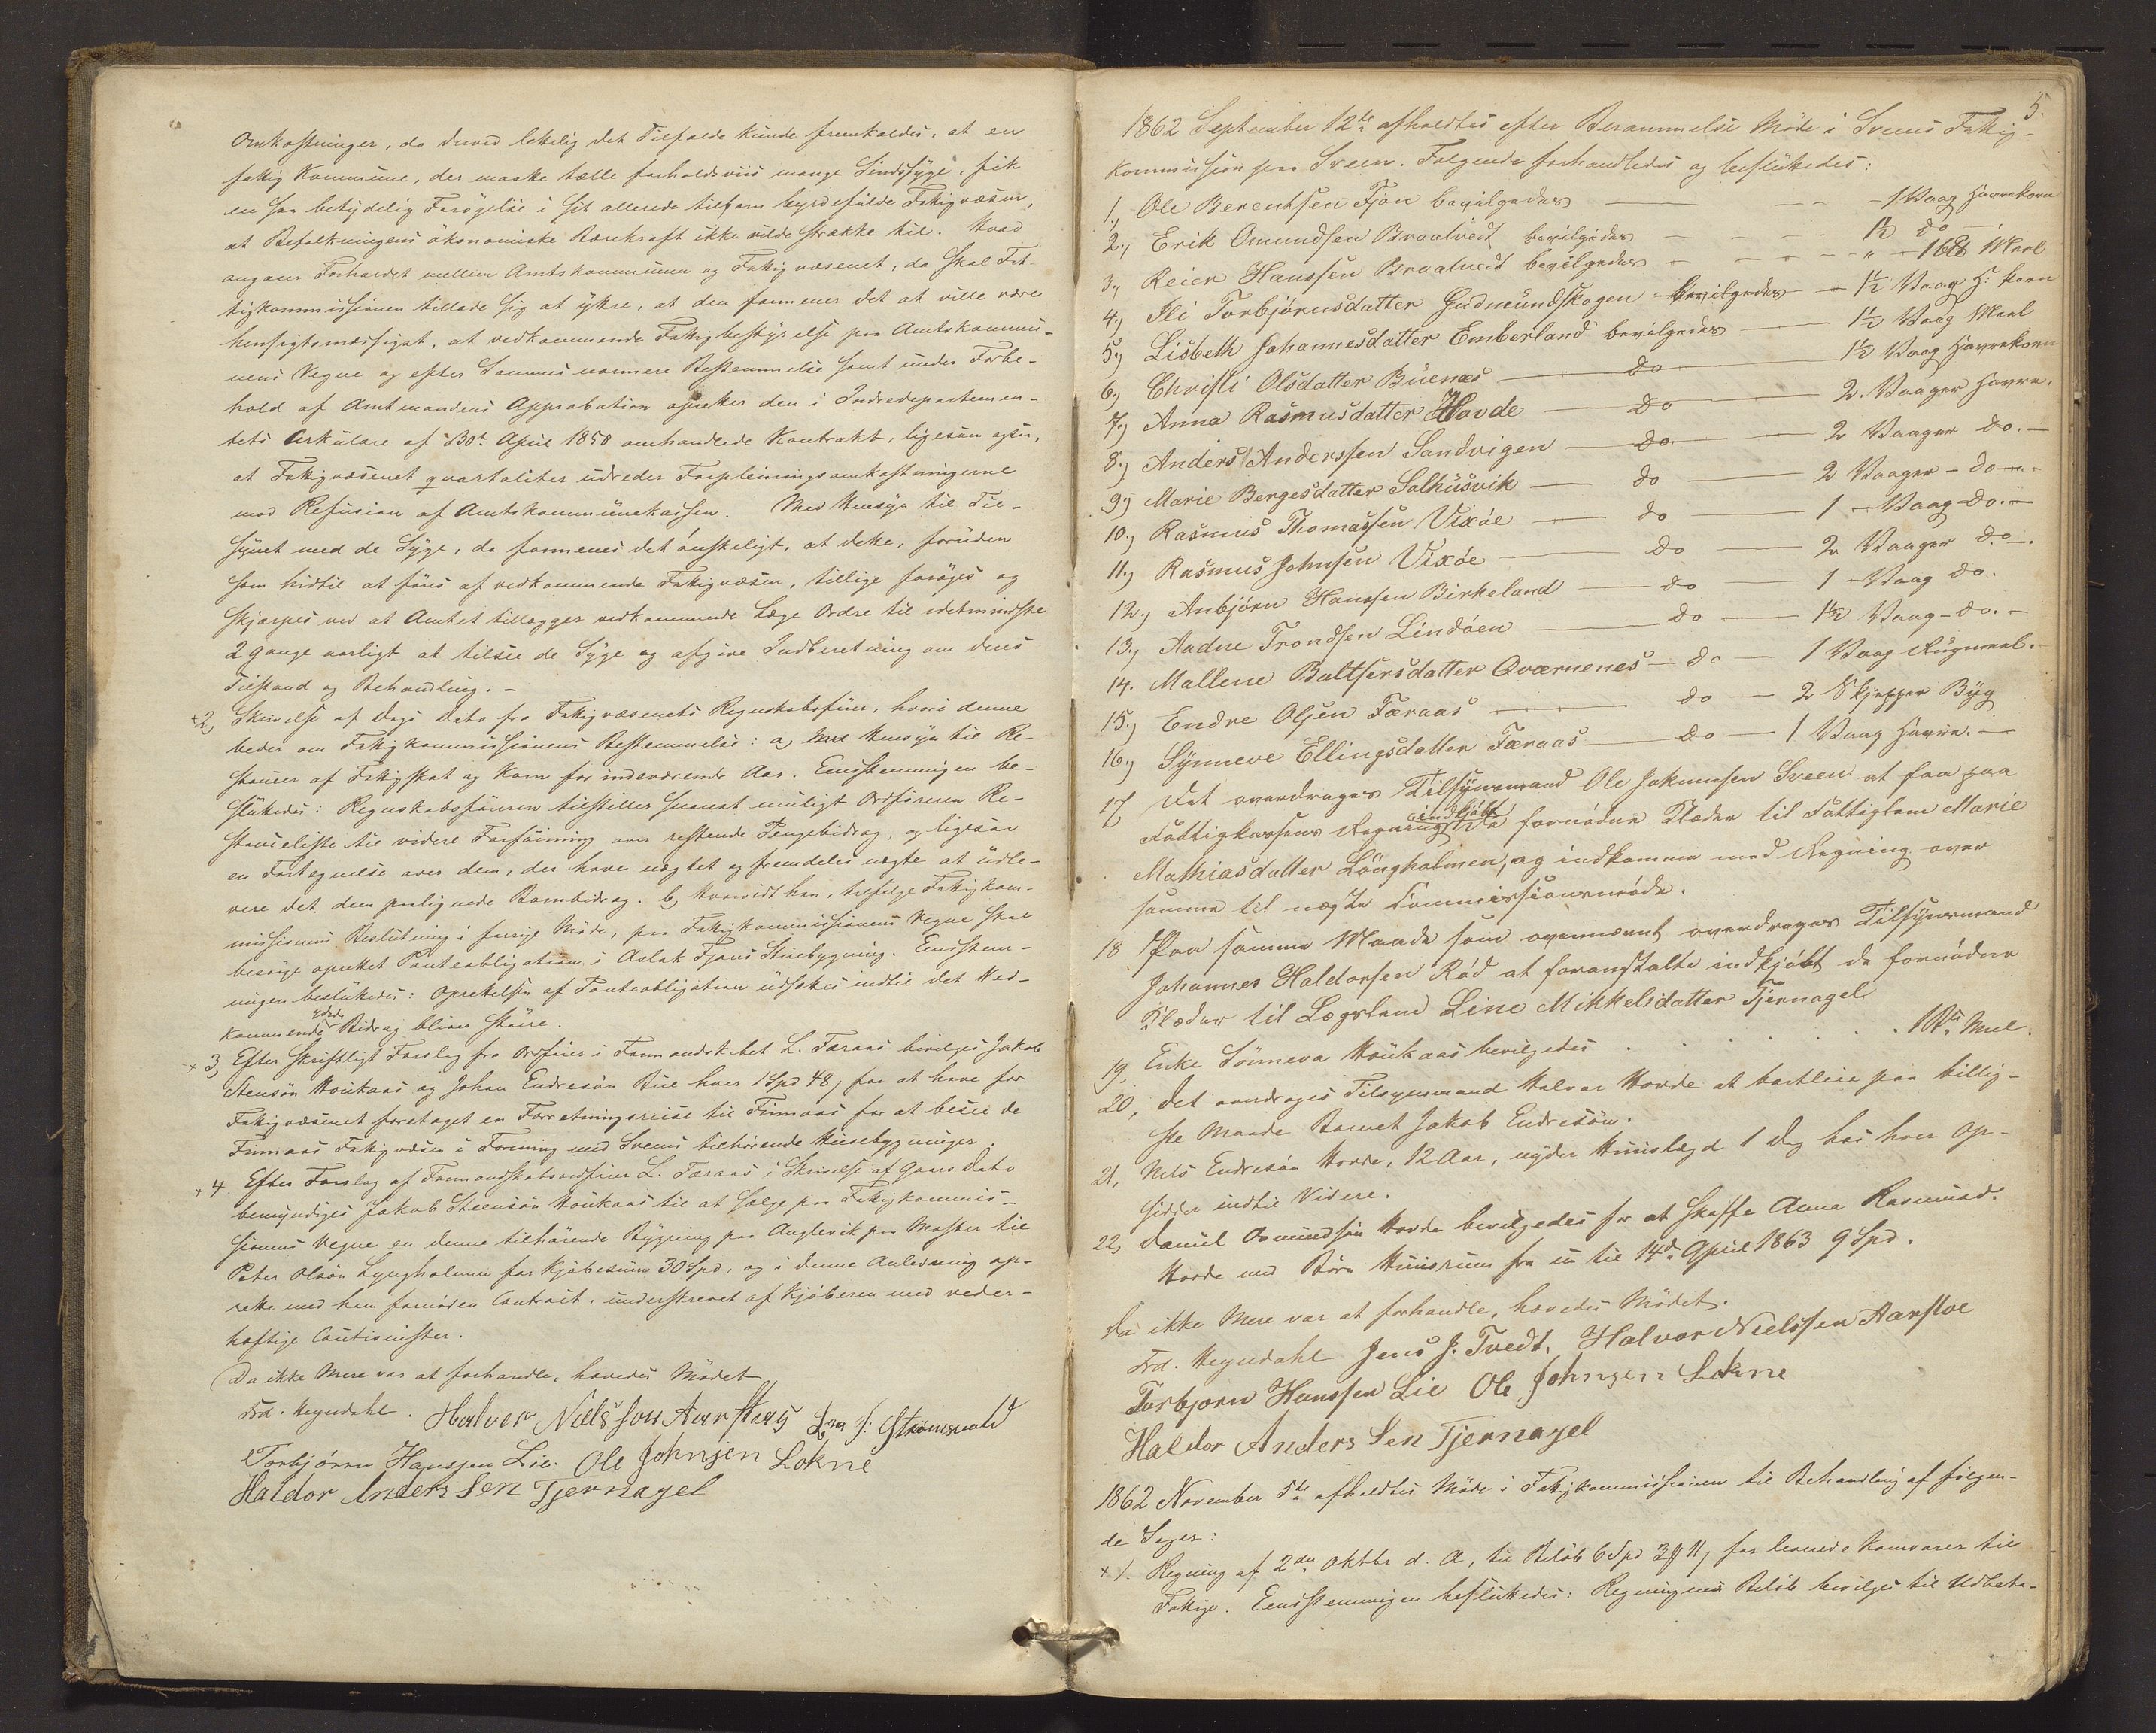 Omkostninger, da derved letelig det Tilfælde kunde fremkaldes, at en
fattig Kommune, der maatte tælle forholdsviis mange Sindssyge, fik
en saa betydelig Forøgelse i sit allerede tilforn byrdefulde Fattigvæsen,
at Befolkningens økonomiske Bærekraft ikke vilde strække til. Hvad
angaaer Forholdet mellem Amtskommunen og Fattigvæsenet, da skal Fat-
tigkommissionen tillade sig at yttre, at den formener det at ville være
hensigtsmæssigst, at vedkommende Fattigbestyrelse paa Amtskommu-
nens Vegne og efter Sammes nærmere Bestemmelse samt under Forbe-
hold af Amtmandens Approbation opretter den i Indredepartemen-
tets Cirkulære af 30te April 1858 omhandlede Kontrakt, ligesom ogsaa,
at Fattigvæsenet qvartaliter udreder Forpleiningsomkostningerne
mod Refusion af Amtskommunekassen. Med Hensyn til Til-
synet med de Syge, da formenes det ønskeligt, at dette, foruden
som hidtil at føres af vedkommende Fattigvæsen, tillige forøges og
skjærpes ved at Amtet tillægger vedkommende Læge Ordre til idetmindste
2 Gange aarligt at tilsee de Syge og afgive Indberetning om deres
Tilstand og Behandling. -
+ 2, Skrivelse af Dags Dato fra Fattigvæsenets Regnskabsfører, hvori denne
beder om Fattigkommissionens Bestemmelse: a, med Hensyn til Re-
stancer af Fattigskat og Korn for indeværende Aar. Eenstemmigen be-
sluttedes: Regnskabsføreren tilstiller snarest muligt Ordføreren Re-
stanceliste til videre Forføining over restende Pengebidrag, og ligesaa
en Fortegnelse over dem, der have nægtet og fremdeles nægte at udle-
vere det dem paalignede Kornbidrag. b, Hvorvidt han, ifølge Fattigkom-
missionens Beslutning i forrige Møde, paa Fattigkommissionens Vegne skal
besørge oprettet Panteobligation i Aslak Fjons Stuebygning. Eenstem-
migen besluttedes: Oprettelsen af Panteobligation udsættes indtil det Ved-
kommende ydede Bidrag bliver større.
+ 3, Efter skriftligt Forslag fra Ordfører i Formandskabet L. Færaas bevilges Jakob
Steensøn Houkaas og Johan Endresøn Bue hver 1 Spd 48 β for at have for
Fattigvæsenet foretaget en Forretningsreise til Finnaas for at besee de
Finnaas Fattigvæsen i Forening med Sveens tilhørende Huusebygninger.
+ 4. Efter Forslag af Formandskabsordfører L. Færaas i Skrivelse af Gaars Dato
bemyndiges Jakob Steensøn Houkaas til at sælge paa Fattigkommis-
sionens Vegne en denne tilhørende Bygning paa Auglevik paa Moster til
Peter Olsøn Lyngholmen for Kjøbesum 30 Spd, og i denne Anledning op-
rette med ham fornøden Contract, underskrevet af Kjøberen med veder-
hæftige Cautionister.
Da ikke Mere var at forhandle, hævedes Mødet
Frd. Heyerdahl. Halvor Nielsson Aarsteg Lars J. Strømsvold
Torbjørn Hanssen Lie. Ole Johnsen Lokne
Haldor Anders Sen Tjernagel
5.
1862 September 12te afholdtes efter Berammelse Møde i Sveens Fattig-
kommission paa Sveen. Følgende forhandledes og besluttedes:
1., Ole Berentsen Fjon bevilgedes - 1 Vaag Havrekorn
2., Erik Omundsen Braatvedt bevilgedes - 1½ do
3., Reier Hanssen Braatvedt bevilgedes - 16 ℔ Meel
4., Sli Torbjørnsdatter Gudmundskogen bevilgedes - 1½ Vaag H: korn
5., Lisbeth Johannesdatter Emberland bevilgedes - 1½ Vaag Meel
6., Christi Olsdatter Buenæs - do - 1½ Vaag Havrekorn
7., Anna Rasmusdatter Hovde - do - 2 Vaager Havre.
8., Anders Anderssen Sandvigen - do - 2 Vaager do. -
9., Marie Bergesdatter Salhusvik - do - 2 Vaager - do -
10., Rasmus Thomassen Vixøe - do - 1 Vaag do. -
11., Rasmus Johnsen Vixøe - do - 2 Vaager do -.
12., Anbjørn Hanssen Birkeland - do - 1 Vaag do.
13., Aadne Trondsen Lindøen - do - 1½ Vaag - do. -
14. Mallene Baltsersdatter Qværnenes - do - 1 Vaag Rugmeel. -
15., Endre Olsen Færaas - do - 2 Skjepper Byg
16., Synneve Ellingsdatter Færaas - do - 1 Vaag Havre. -
17 Det overdrages Tilsynsmand Ole Jokumsen Sveen at faa paa
Fattigkassens Regning indkjøbt de fornødne Klæder til Fattiglem Marie
Mathiasdatter Löngholmen, og indkomme med Regning over
samme til næste Commissionsmøde.
18 Paa samme Maade som ovennævnt overdrages Tilsynsmand
Johannes Haldorsen Rød at foranstalte indkjøbt de fornødne
Klæder til Lægslem Line Mikkelsdatter Tjernagel
19, Enke Synneva Houkaas bevilgedes . . . . . . 18 ℔ Meel.
20, Det overdrages Tilsynsmand Halvor Hovde at bortleie paa billig-
ste Maade Barnet Jakob Endresøn.
21, Nels Endresøn Hovde, 12 Aar, nyder Huuslægd 1 Dag hos hver Op-
sidder indtil Videre.
22, Daniel Osmundsøn Hovde bevilgedes for at skaffe Anna Rasmusd.
Hovde med Børn Huusrum fra nu til 14de April 1863 9 Spd.
Da ikke Mere var at forhandle, hævedes Mødet.
Frd. Heyerdahl Jens J. Tvedt. Halvor Nielssen Aarsvoe
Torbjørn Hanssen Lie Ole Johnsen Lokne
Haldor Anders Sen Tjernagel
1862 November 5te afholdtes Møde i Fattigkommissionen til Behandling af følgen-
de Sager:
+ 1. Regning af 2den Oktbr d. A, til Beløb 6 Spd 3 for leverede Kornvarer til
Fattige. Eenstemmigen besluttedes: Regningens Beløb bevilges til Udbeta-